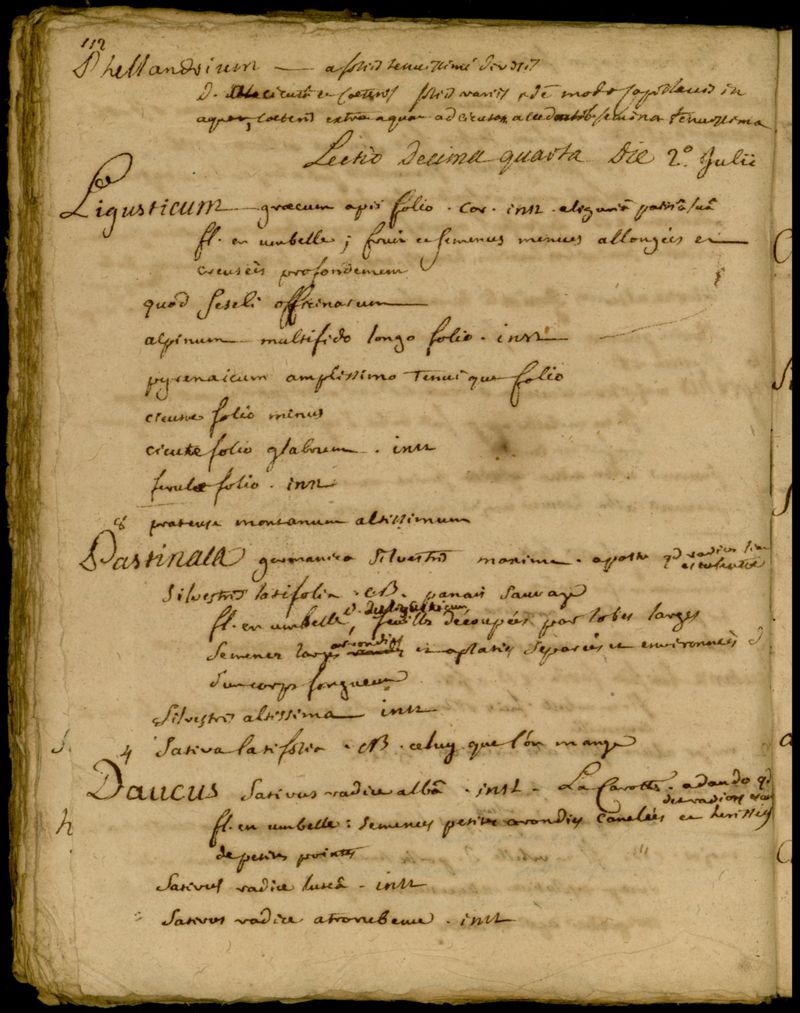 112
Phellandrium — a foliis tenuissimè divisis
D. cicuta et caeteris foliis variis modo in
aquis, caeteris extra aquam semina tenuissima
Lectio Decima quarta Die 2° Julii
Ligusticum graecum apii folio . cor . inst . a liguriâ patriâ suâ
fl. en umbelle ; fruit et semences menues allongées et
creusées profondement
quod seseli officinarum
alpinum multifido longo folio . inst
pyrenaicum amplissimo tenuique folio
cicutae folio minus
cicutae folio glabrum . inst
ferulae folio . inst
8 pratense montanum altissimum
Pastinaca germanica silvestris maxima . a pastu qd radix
silvestris latifolia . CB . panais sauvage
fl. en umbelle, feuilles decoupées par lobes larges
semences larges arondies et aplaties separées et environnées d
dun corps fongueux
silvestris altissima inst
4 sativa latifolia . CB . celuy que l'on mange
Daucus sativus radice albâ . inst . La Carotte . a dando qd
fl. en umbelle : semences petites arondies canelées et herissées
de petites pointes
sativus radice luteâ . inst
sativus radice atrorubente . inst